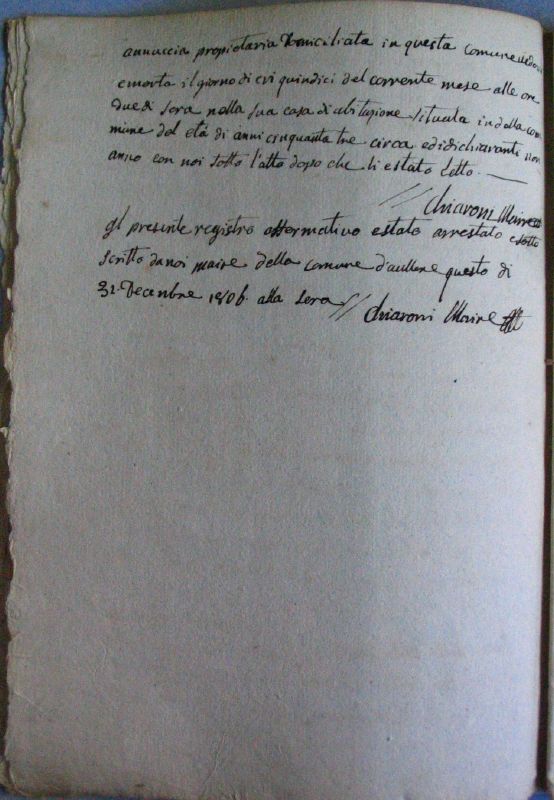 annuccia propietaria Domiciliata in questa Comune
e morta il giorno di cvi quindici del corrente mese alle ore
due di sera nella sua casa di abitazione situata in della com
mune del età di anni cinquanta tre circa ed i dichiaranti non
anno con noi sotto l'atto dopo che li e stato letto. —
// Chiaroni Maire
Il presente registro affermativo e stato arrestato e sotto
scritto da noi maire della comune d'aullene questo di
31. Decenbre 1806. alla sera // Chiaroni Maire